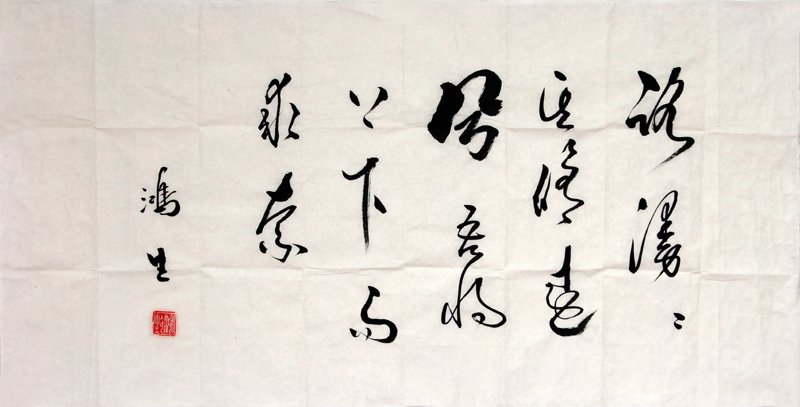 路漫〻
其修遠
兮吾将
上下而
求索
鴻生